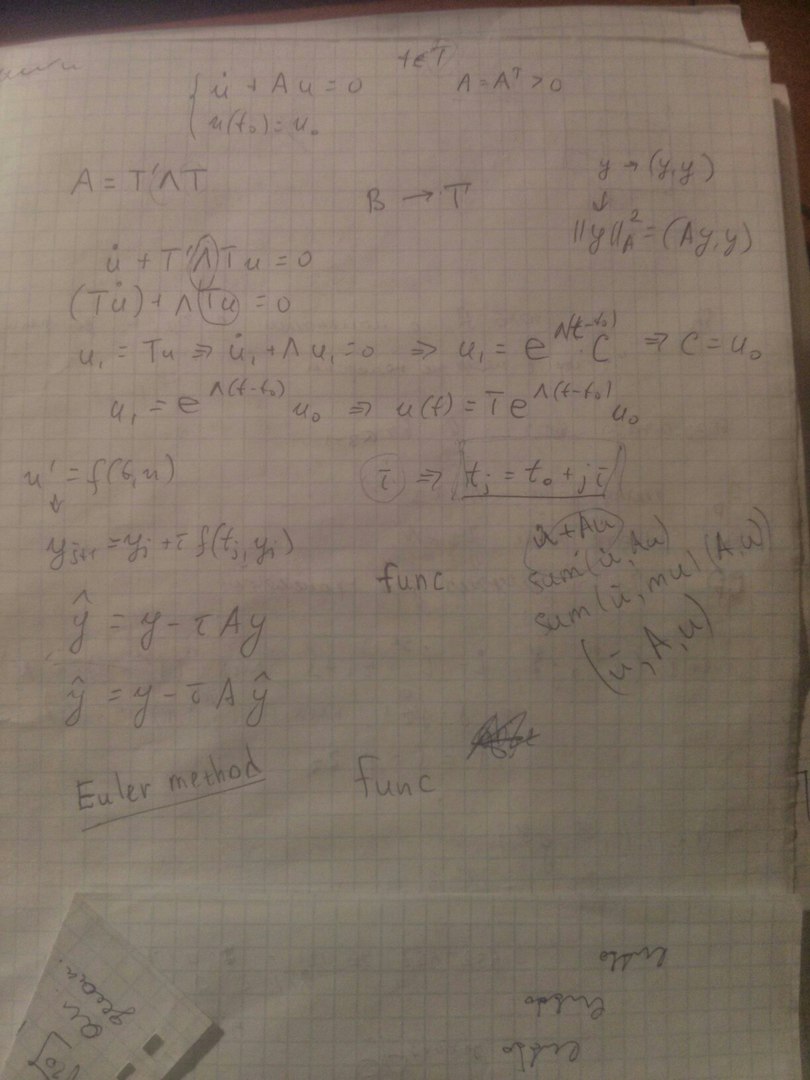 { u̇ + Au = 0 t∈T A = Aᵀ > 0
u(t₀) = u₀
A = T'ΛT
B → T
y → (y,y)
↓
||y||²_A = (Ay,y)
u̇ + T'ΛTu = 0
(Tu̇) + ΛTu = 0
u₁ = Tu ⇒ u̇₁ + Λu₁ = 0 ⇒ u₁ = e^Λ(t-t₀) · C ⇒ C = u₀
u₁ = e^Λ(t-t₀) u₀ ⇒ u(t) = T e^Λ(t-t₀) u₀
u' = f(t,u)
↓
τ ⇒ tⱼ = t₀ + jτ
yⱼ₊₁ = yⱼ + τ f(tⱼ, yⱼ)
u̇ + Au
sum(u̇, Au)
sum(u̇, mul(A,u))
(u̇, A, u)
func
ŷ = y - τAy
ŷ = y - τAŷ
Euler method
func